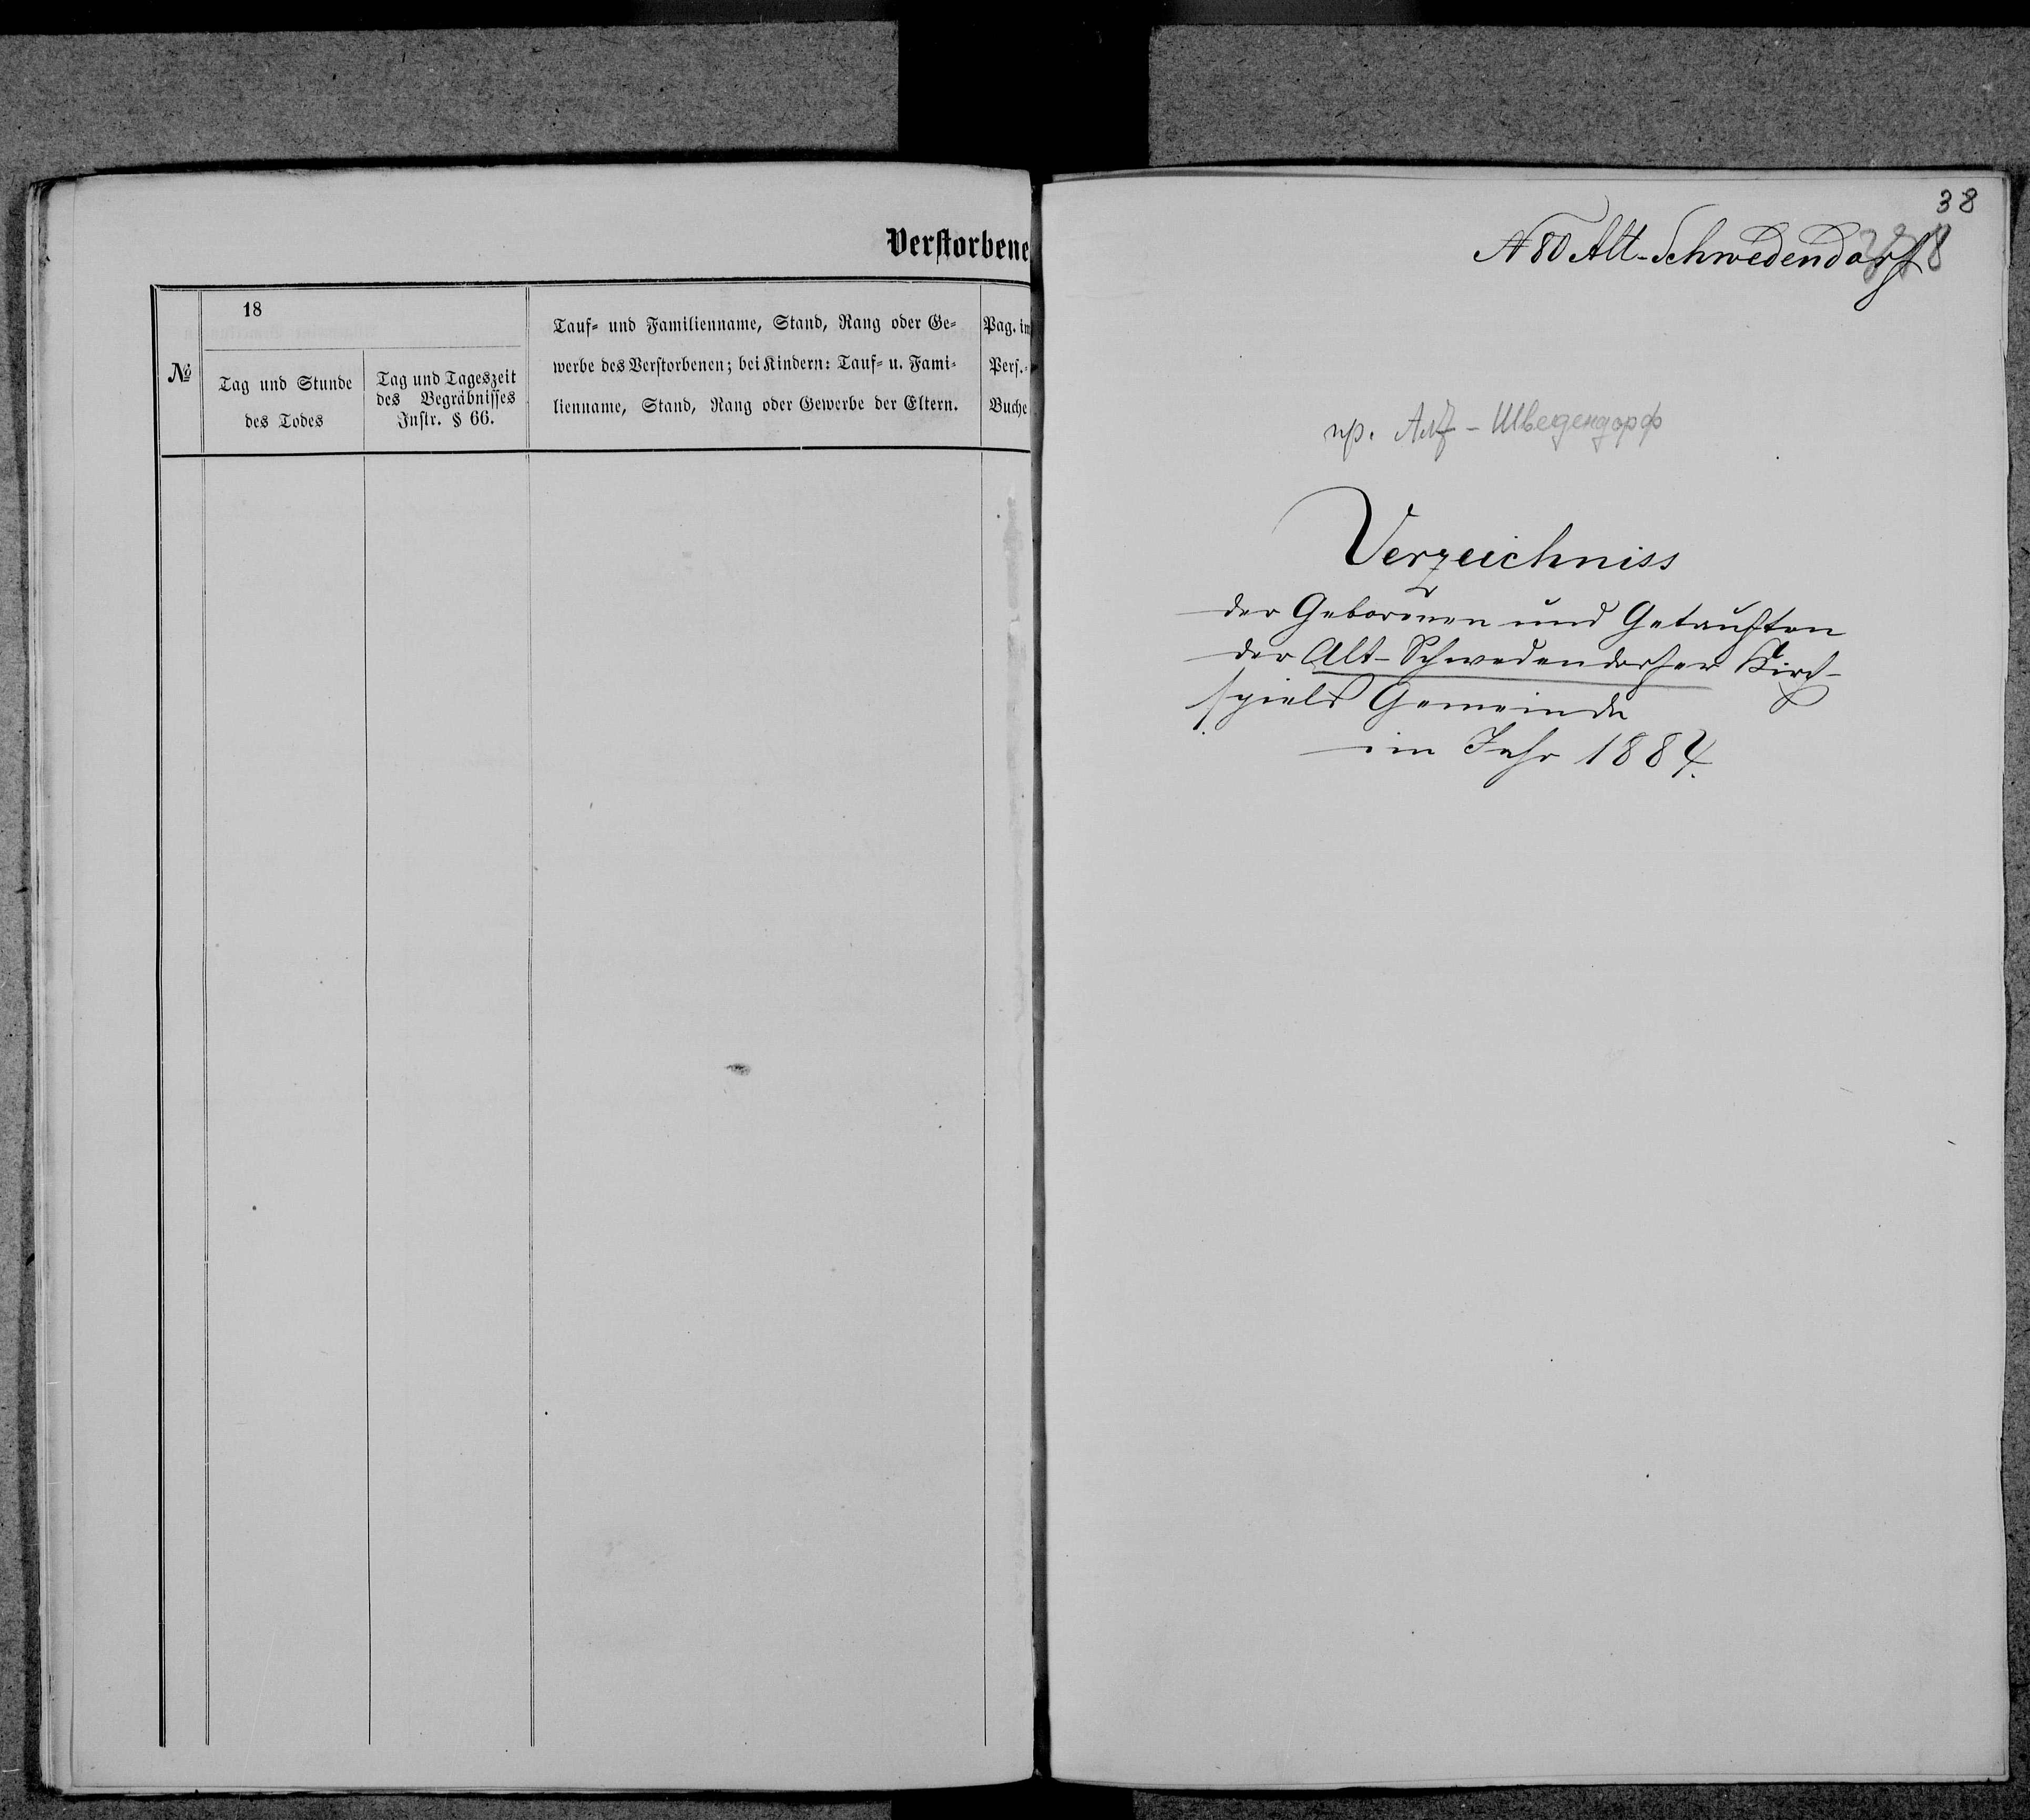 Verstorbene
№
18
Tag und Stunde
des Todes
Tag und Tageszeit
des Begräbnisses
Instr. § 66.
Tauf- und Familienname, Stand, Rang oder Ge-
werbe des Verstorbenen; bei Kindern: Tauf- u. Fami-
lienname, Stand, Rang oder Gewerbe der Eltern.
Pag. im
Pers.-
Buche
38
N 80 Alt-Schwedendorf
пр. Альт-Шведендорф
Verzeichniss
der Geborenen und Getauften
der Alt-Schwedendorfer Kirch-
spiels Gemeinde
im Jahr 1884.